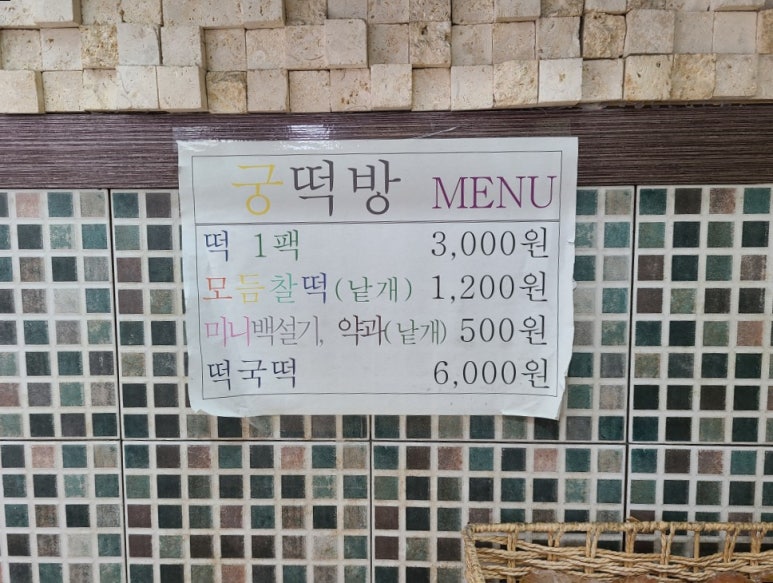 궁떡방 MENU
떡 1팩 3,000원
모듬찰떡(낱개) 1,200원
미니백설기, 약과(낱개) 500원
떡국떡 6,000원